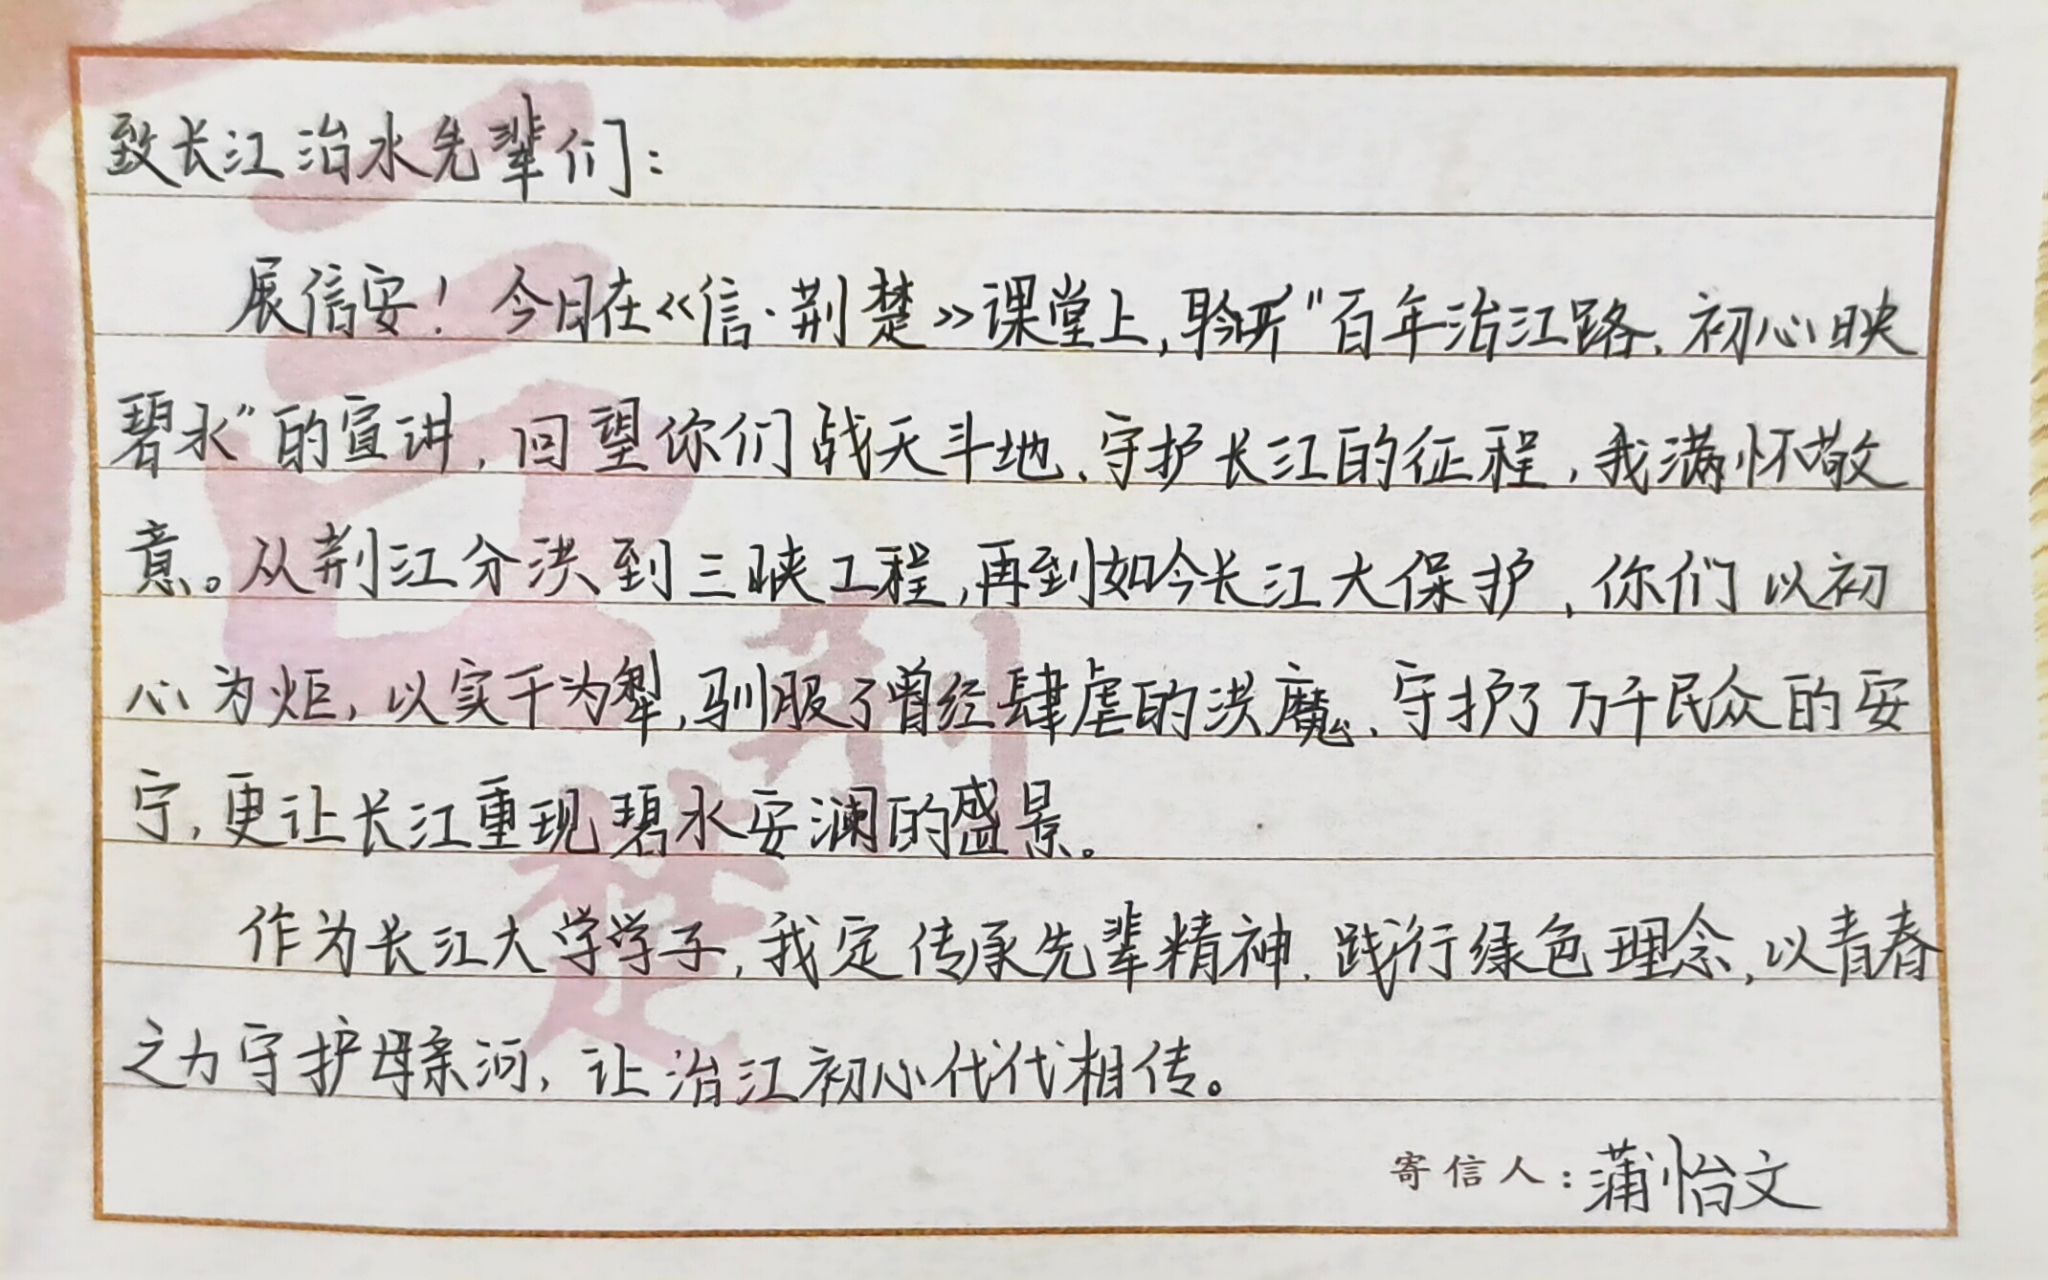 致长江治水先辈们：
展信安！今日在《信·荆楚》课堂上，聆听“百年治江路，初心映
碧水”的宣讲，回望你们战天斗地、守护长江的征程，我满怀敬
意。从荆江分洪到三峡工程，再到如今长江大保护，你们以初
心为炬，以实干为犁，驯服了曾经肆虐的洪魔、守护了万千民众的安
宁，更让长江重现碧水安澜的盛景。
作为长江大学学子，我定传承先辈精神、践行绿色理念，以青春
之力守护母亲河，让治江初心代代相传。
寄信人：蒲怡文
信
荆
楚